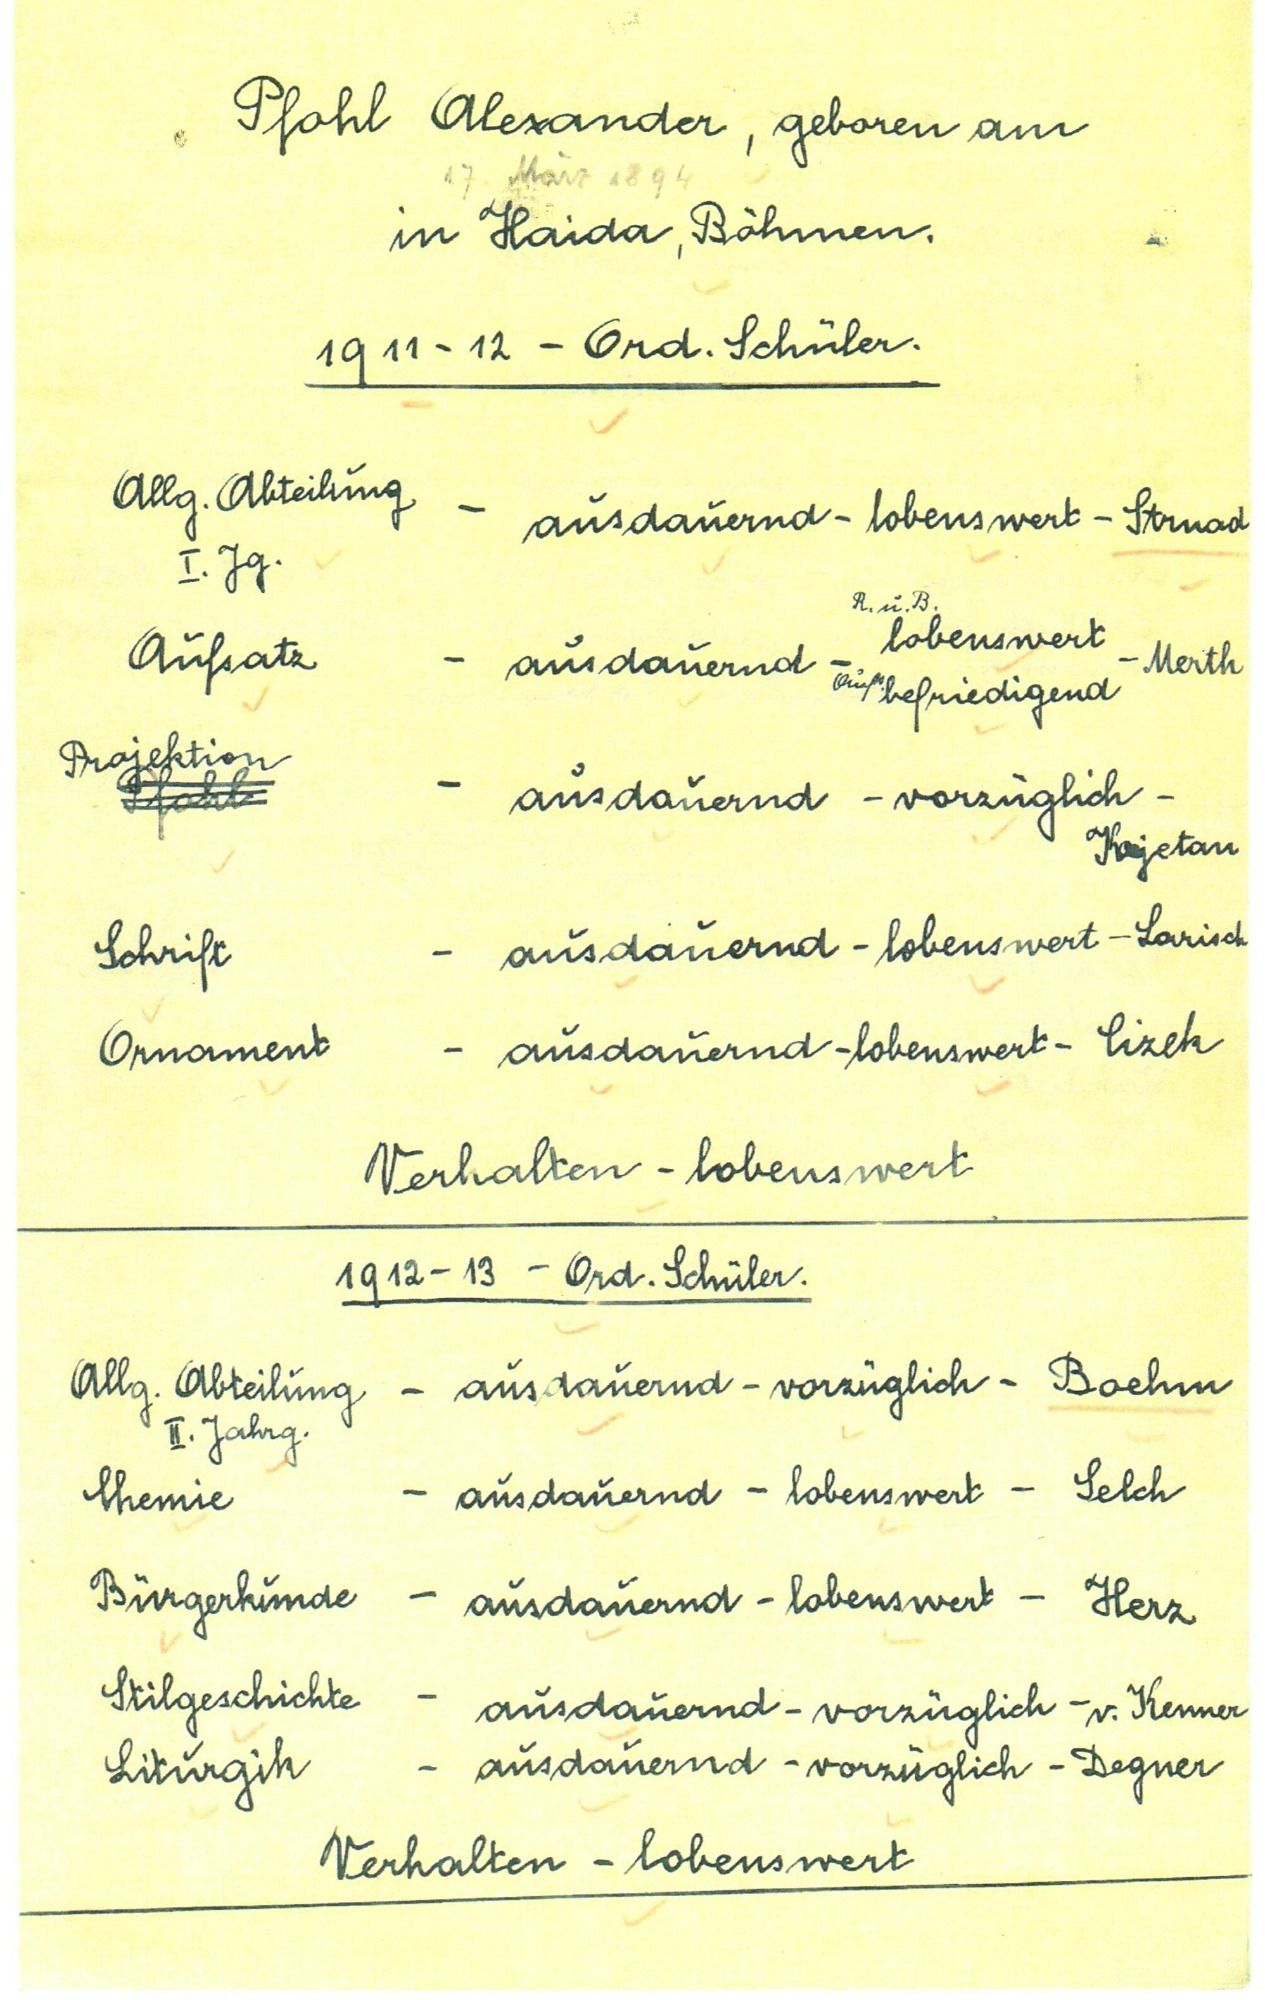 Pfohl Alexander, geboren am
17. März 1894
in Haida, Böhmen.
1911-12 - Ord. Schüler.
Allg. Abteilung - ausdauernd - lobenswert - Strnad
I. Jg.
R. u. B.
Aufsatz - ausdauernd - lobenswert - Merth
Aufs. befriedigend
Projektion - ausdauernd - vorzüglich -
Pfohl
Kajetan
Schrift - ausdauernd - lobenswert - Larisch
Ornament - ausdauernd - lobenswert - Cizek
Verhalten - lobenswert
1912-13 - Ord. Schüler.
Allg. Abteilung - ausdauernd - vorzüglich - Boehm
II. Jahrg.
Chemie - ausdauernd - lobenswert - Selch
Bürgerkunde - ausdauernd - lobenswert - Herz
Stilgeschichte - ausdauernd - vorzüglich - v. Kenner
Liturgik - ausdauernd - vorzüglich - Degner
Verhalten - lobenswert